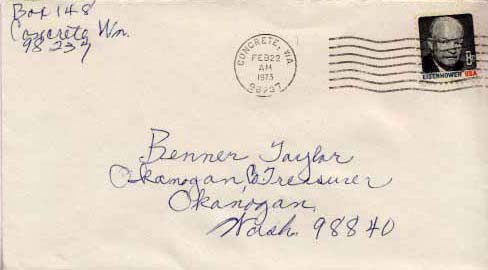 Box 148
Concrete Wn.
98237
CONCRETE, WA
FEB 22
AM
1973
98237
8¢
EISENHOWER USA
Benner Taylor
Okanogan Co Treasurer
Okanogan,
Wash. 98840